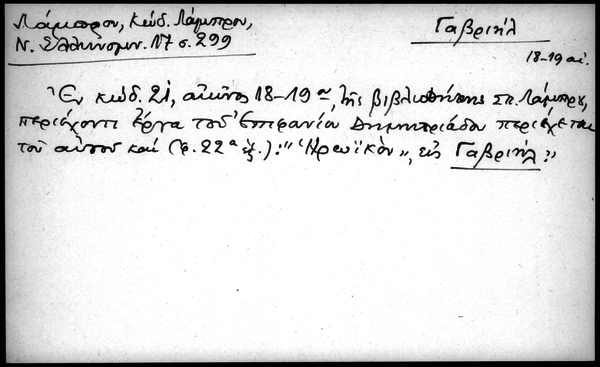 Λάμπρου, Κώδ. Λάμπρου,
Ν. Ἑλληνομν. 17 σ. 299
Γαβριήλ
18-19 αἰ.
Ἐν κώδ. 21, αἰῶνος 18-19ου, τῆς βιβλιοθήκης Σπ. Λάμπρου,
περιέχοντι ἔργα τοῦ Ἐπιφανίου Δημητριάδου περιέχεται
τοῦ αὐτοῦ καὶ (φ. 22α ἑξ.): "Ἡρωϊκὸν", εἰς Γαβριήλ"